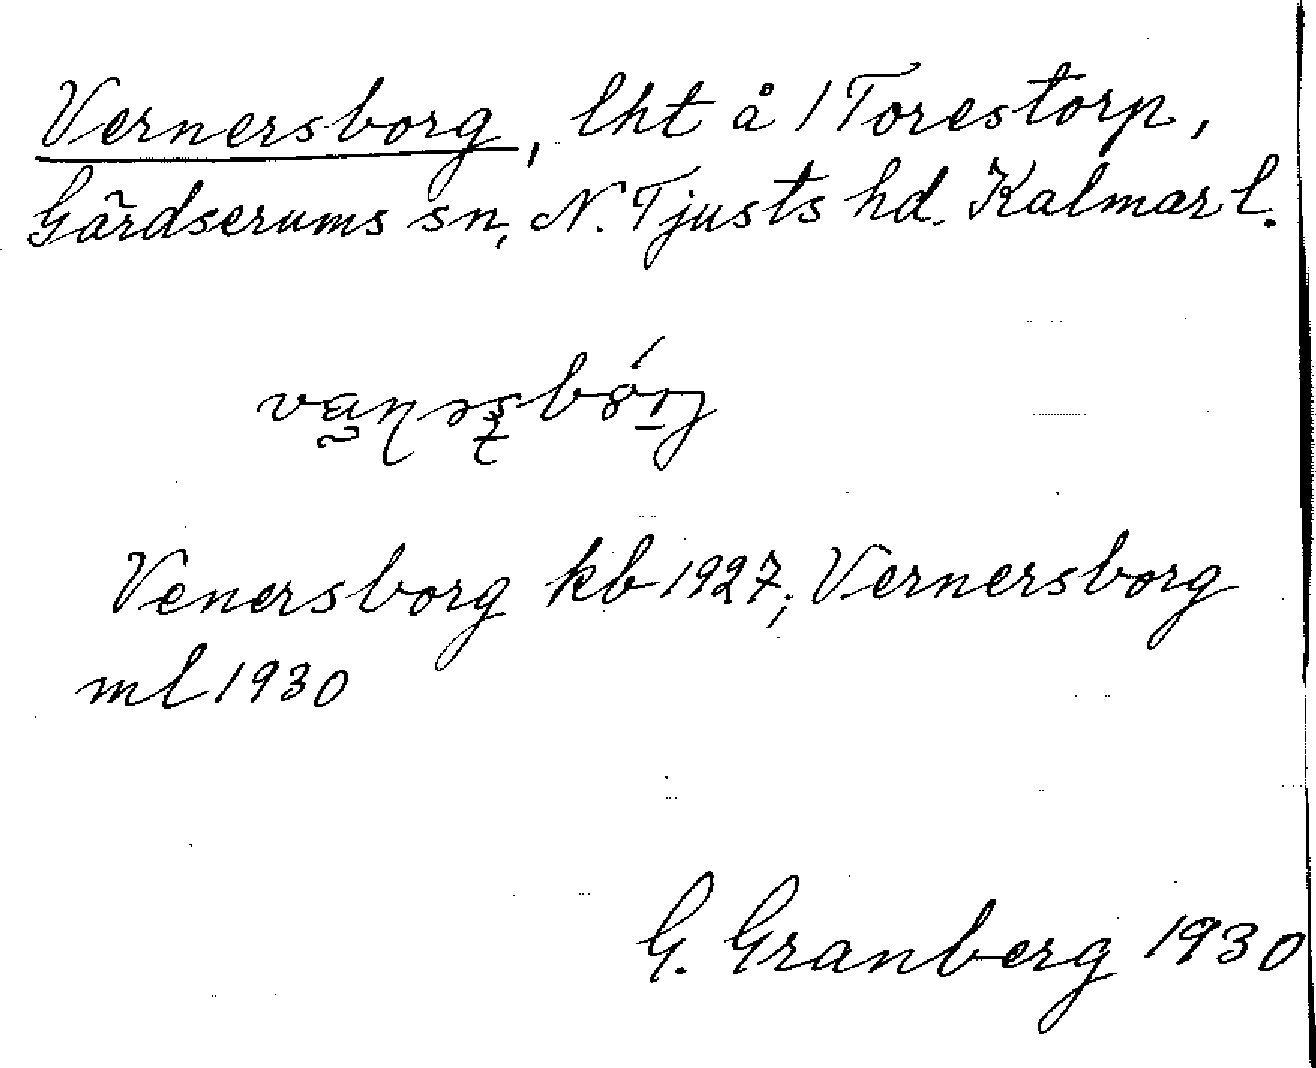 Vernersborg, lht å 1 Torestorp,
Gärdserums sn, N. Tjusts hd. Kalmar l.
Venersborg kb 1927; Vernersborg
ml 1930
G. Granberg 1930